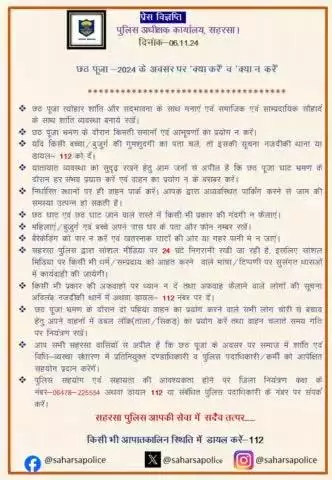 प्रेस विज्ञप्ति
पुलिस अधीक्षक कार्यालय, सहरसा।
दिनांक-06.11.24
छठ पूजा –2024 के अवसर पर 'क्या करें' व 'क्या न करें'
छठ पूजा त्योहार शांति और सद्भावना के साथ मनाएं एवं समाजिक एवं साम्प्रदायिक सौहार्द
के साथ शांति व्यवस्था बनाये रखें।
छठ पूजा भ्रमण के दौरान किमती समानों एवं आभूषणों का प्रयोग न करें।
यदि किसी बच्चा/बुजुर्ग की गुमशुदगी का पता चले, तो इसकी सूचना नजदीकी थाना या
डायल– 112 को दें।
यातायात व्यवस्था को सुदृढ़ रखने हेतु आम जनों से अपील है कि छठ पूजा घाट भ्रमण के
दौरान हर संभव प्रयास करें एवं वाहन का प्रयोग न के बराबर करें।
निर्धारित स्थानों पर ही वाहन पार्क करें। आपक द्वारा अव्यवस्थित पार्किंग करने से जाम की
समस्या उत्पन्न हो सकती है।
छठ घाट एवं छठ घाट जाने वाले रास्ते में किसी भी प्रकार की गंदगी न फैलाएं।
महिलाएं/बुजुर्ग एवं बच्चे अपने पास घर के पता और फोन नम्बर रखें।
बैरकेडिंग को पार न करें एवं खतरनाक घाटों की ओर या गहरे पानी में न जाएं।
सहरसा पुलिस द्वारा सोशल मीडिया पर 24 घंटे निगरानी रखी जा रही है, इसलिए सोशल
मिडिया पर किसी भी धर्म/सम्प्रदाय को आहत करने वाले भाषा/टिप्पणी पर सुसंगत धाराओं
में कार्यवाही की जायेगी।
किसी भी प्रकार की अफवाहों पर ध्यान न दें तथा अफवाह फैलाने वाले लोगों की सूचना
अविलंब नजदीकी थानें में अथवा डायल– 112 नंबर पर दें।
छठ पूजा भ्रमण के दौरान दो पहिया वाहन का प्रयोग करने वाले सभी लोग चोरी से बचाव
हेतु अपने वाहनों में डबल लॉक(ताला/सिकड़) का प्रयोग करें तथा वाहन चलाते समय गति
पर नियंत्रण रखें।
आप सभी सहरसा वासियों से अपील है कि छठ पूजा के अवसर पर समाज में शांति एवं
विधि–व्यवस्था संधारण में प्रतिनियुक्त दण्डाधिकारी व पुलिस पदाधिकारी/कर्मी को अपेक्षित
सहयोग प्रदान करेगें।
पुलिस सहयोग एवं सहायता की आवश्यकता होने पर जिला नियंत्रण कक्ष के
नंबर–06478-225594 अथवा डायल 112 या संबंधित पुलिस पदाधिकारी के नंबर पर संपर्क
करें।
सहरसा पुलिस आपकी सेवा में सदैव तत्पर.....
किसी भी आपातकालिन स्थिति में डायल करें–112
@saharsapolice @saharsapolice @saharsapolice